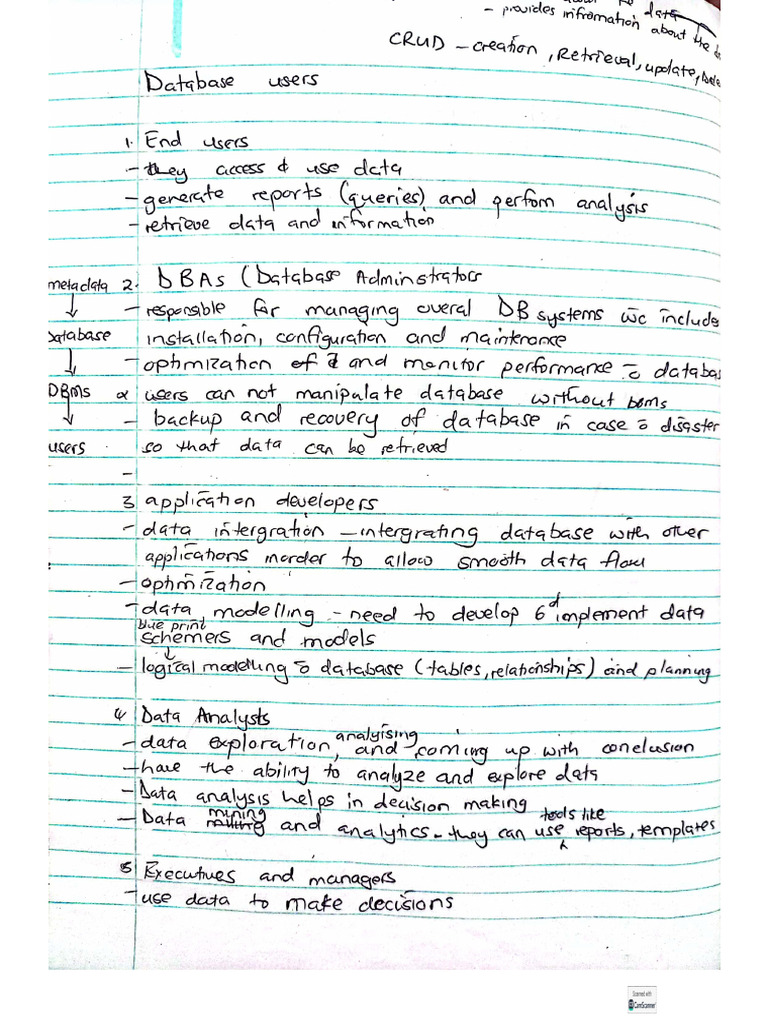 to data
- provides infromation about the
CRUD - creation, Retrieval, update,
Database users
1. End users
- they access & use data
- generate reports (queries) and perfom analysis
- retrieve data and information
metadata 2. DBAs (Database Adminstrators
- responsable for managing overal DB systems wc include
database installation, configuration and maintenance
- optimization of and monitor performance o databas
DBMS α users can not manipulate database without DBMS
- backup and recovery of database in case o disaster
users so that data can be retrieved
-
3 application developers
- data intergration - intergrating database with other
applications inorder to allow smooth data flow
- optimization
- data modelling - need to develop & implement data
blue print
schemers and models
- logical modelling o database (tables, relationships) and planning
4 Data Analysts
- data exploration, analyising and coming up with conclusion
- have the ability to analyze and explore data
- Data analysis helps in decision making
- Data mining and analytics - they can use tools like reports, templates
5 Executives and managers
- use data to make decisions
Scanned with
CamScanner